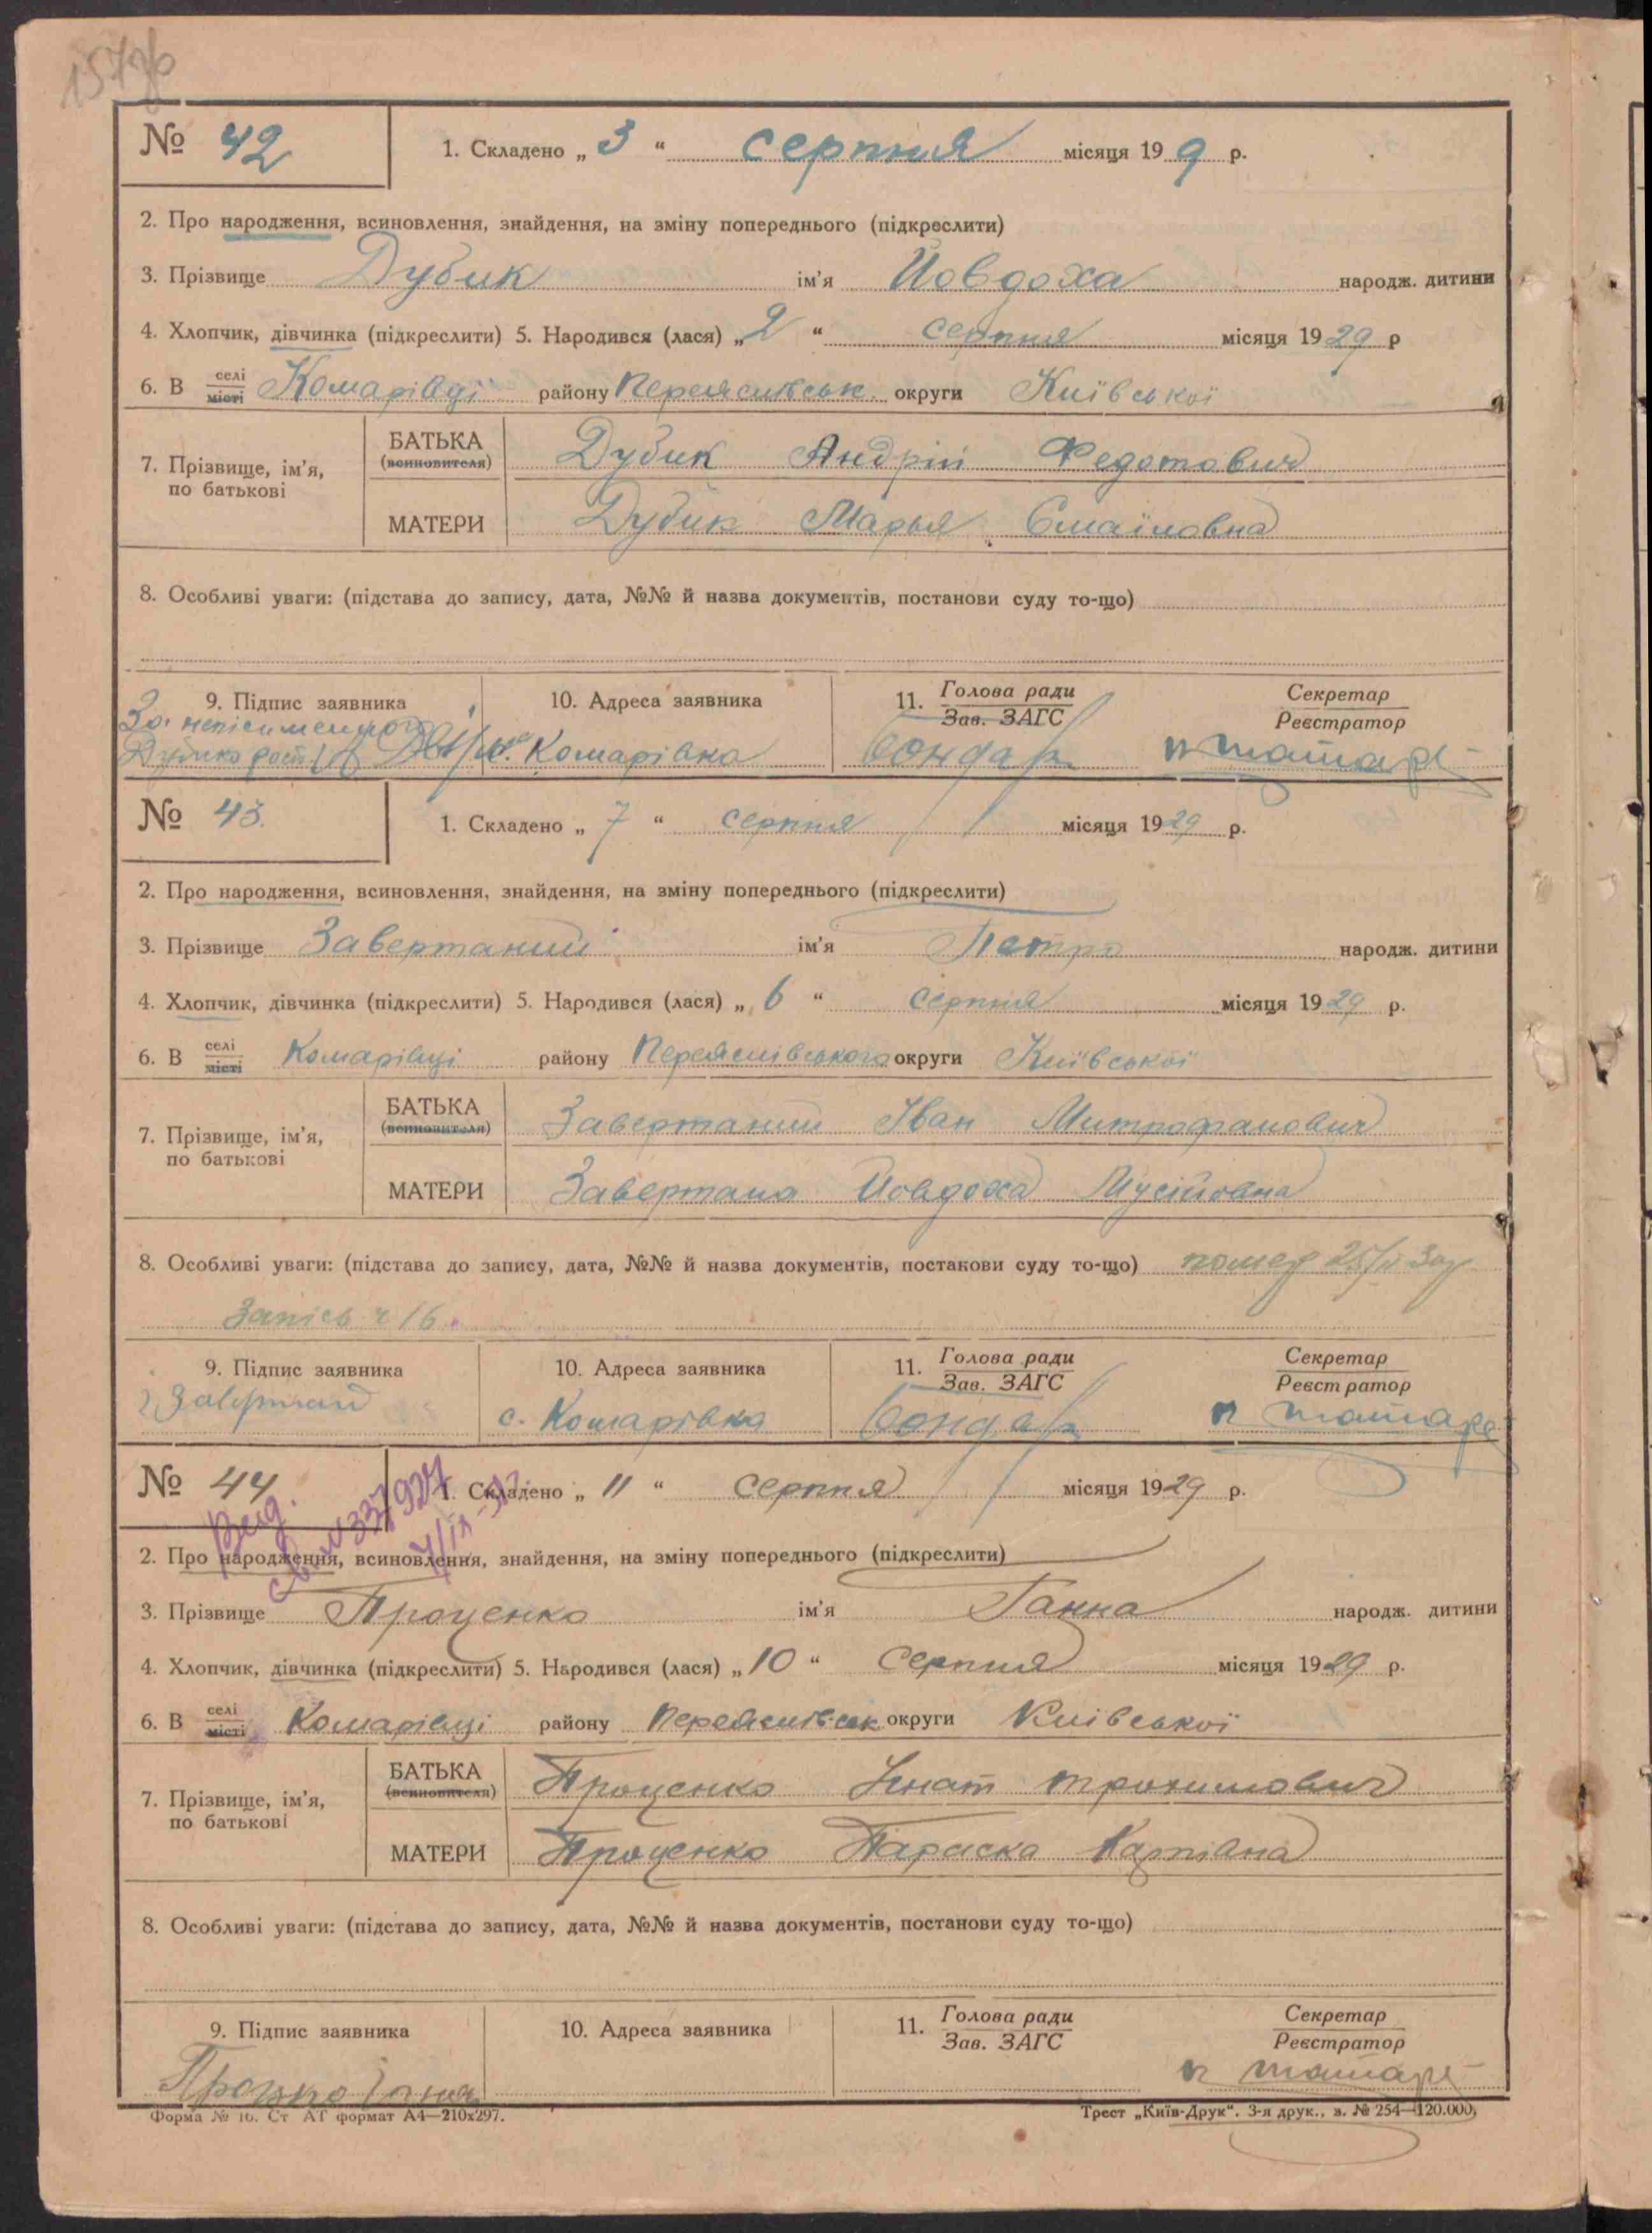 № 42 1. Складено „ 3 “ серпня місяця 19 9 р.
2. Про народження, всиновлення, знайдення, на зміну попереднього (підкреслити)
3. Прізвище Дубик ім'я Йовдоха народж. дитини
4. Хлопчик, дівчинка (підкреслити) 5. Народився (лася) „ 2 “ серпня місяця 19 29 р
6. В селі місті Комарівці району Переяславськ. округи Київської
7. Прізвище, ім'я, по батькові
БАТЬКА (всиновителя) Дубик Андрій Федотович
МАТЕРИ Дубик Марья
8. Особливі уваги: (підстава до запису, дата, №№ й назва документів, постанови суду то-що)
9. Підпис заявника 10. Адреса заявника 11. Голова ради Зав. ЗАГС Секретар Реєстратор
За непісьменного
Дубика с. Комарівка Бондар
№ 43. 1. Складено „ 7 “ серпня місяця 19 29 р.
2. Про народження, всиновлення, знайдення, на зміну попереднього (підкреслити)
3. Прізвище Завертаний ім'я Петро народж. дитини
4. Хлопчик, дівчинка (підкреслити) 5. Народився (лася) „ 6 “ серпня місяця 19 29 р.
6. В селі місті Комарівці району Переяславського округи Київської
7. Прізвище, ім'я, по батькові
БАТЬКА (всиновителя) Завертаний Іван Митрофанович
МАТЕРИ Завертана Йовдоха Мусійовна
8. Особливі уваги: (підстава до запису, дата, №№ й назва документів, постанови суду то-що) помер
Запісь ч 16.
9. Підпис заявника 10. Адреса заявника 11. Голова ради Зав. ЗАГС Секретар Реєстратор
с. Комарівка Бондар
№ 44 1. Складено „ 11 “ серпня місяця 19 29 р.
Вид. 337927
2. Про народження, всиновлення, знайдення, на зміну попереднього (підкреслити)
3. Прізвище Проценко ім'я Ганна народж. дитини
4. Хлопчик, дівчинка (підкреслити) 5. Народився (лася) „ 10 “ серпня місяця 19 29 р.
6. В селі місті Комарівці району Переяславськ округи Київської
7. Прізвище, ім'я, по батькові
БАТЬКА (всиновителя) Проценко Ігнат трохимович
МАТЕРИ Проценко Параска Карпівна
8. Особливі уваги: (підстава до запису, дата, №№ й назва документів, постанови суду то-що)
9. Підпис заявника 10. Адреса заявника 11. Голова ради Зав. ЗАГС Секретар Реєстратор
Форма № 16. Ст АТ формат А4—210х297. Трест „Київ-Друк“. 3-я друк., з. № 254—120.000,